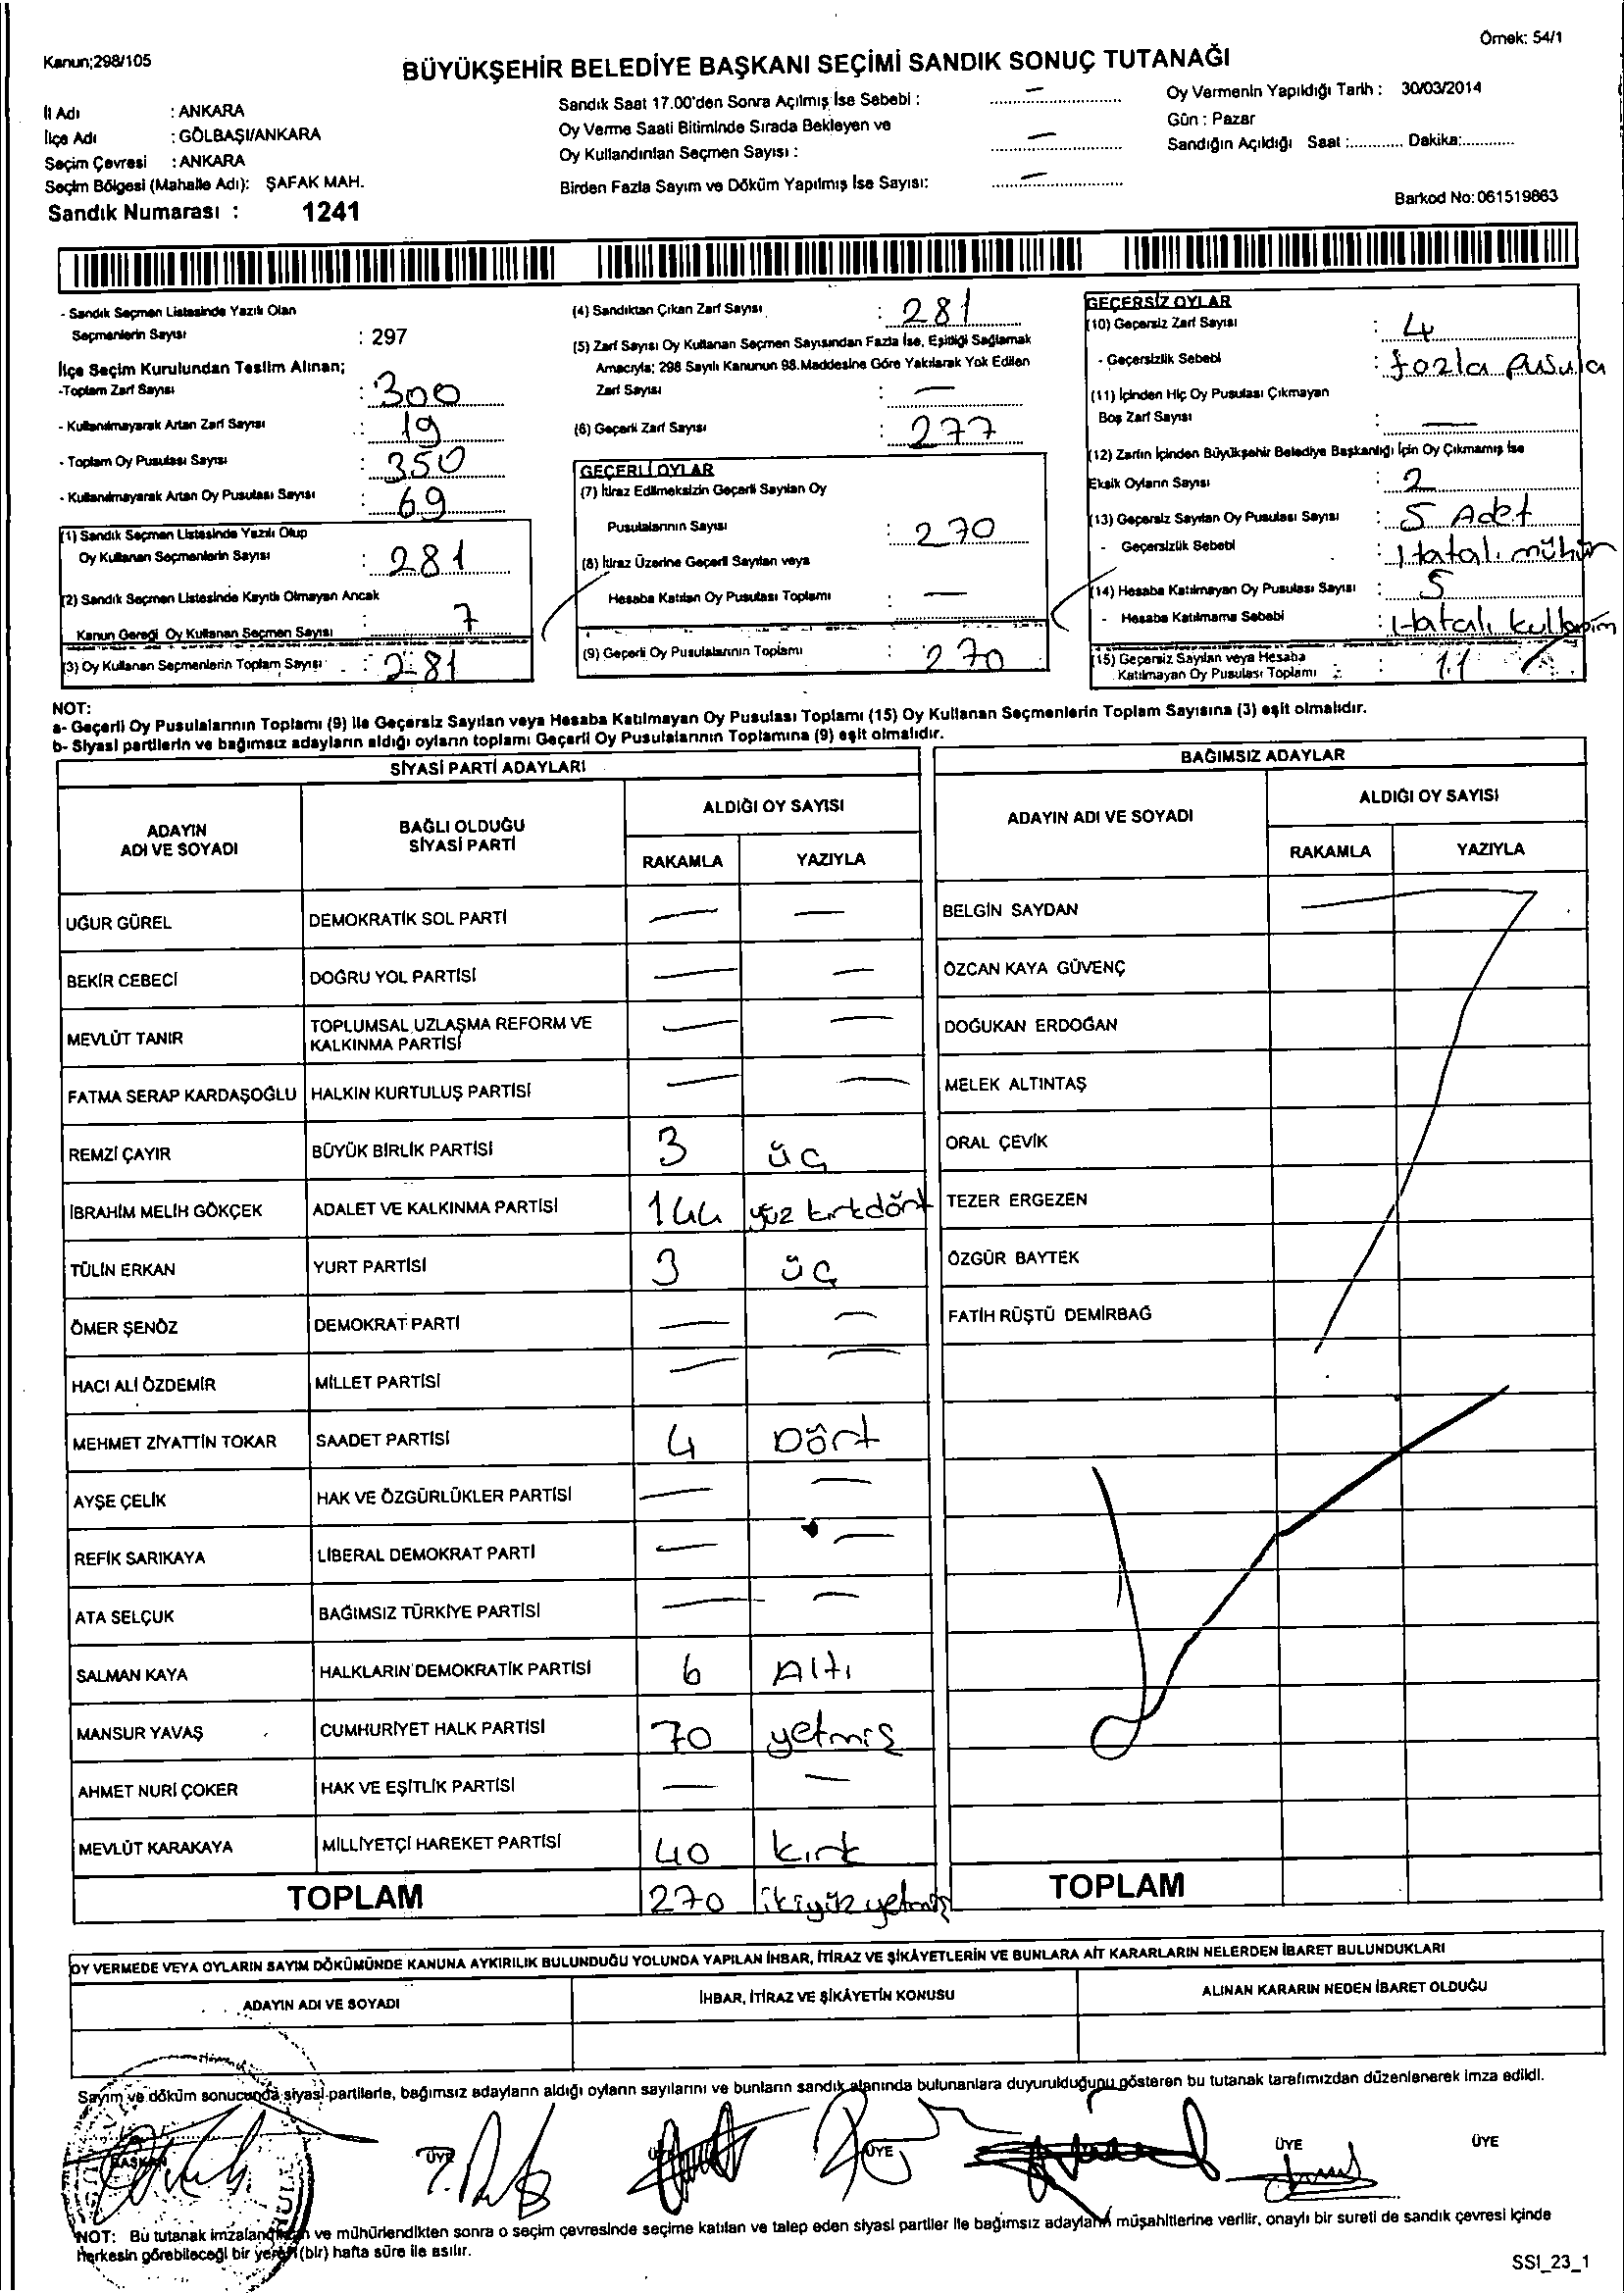 Örnek: 54/1
Kanun;298/105
BÜYÜKŞEHİR BELEDİYE BAŞKANI SEÇİMİ SANDIK SONUÇ TUTANAĞI
İl Adı : ANKARA
İlçe Adı : GÖLBAŞI/ANKARA
Seçim Çevresi : ANKARA
Seçim Bölgesi (Mahalle Adı): ŞAFAK MAH.
Sandık Numarası : 1241
Sandık Saat 17.00'den Sonra Açılmış İse Sebebi : —
Oy Verme Saati Bitiminde Sırada Bekleyen ve
Oy Kullandırılan Seçmen Sayısı : —
Birden Fazla Sayım ve Döküm Yapılmış İse Sayısı: —
Oy Vermenin Yapıldığı Tarih : 30/03/2014
Gün : Pazar
Sandığın Açıldığı Saat :............ Dakika:............
Barkod No: 061519863
- Sandık Seçmen Listesinde Yazılı Olan
Seçmenlerin Sayısı : 297
İlçe Seçim Kurulundan Teslim Alınan;
-Toplam Zarf Sayısı : 300
- Kullanılmayarak Artan Zarf Sayısı : 19
- Toplam Oy Pusulası Sayısı : 350
- Kullanılmayarak Artan Oy Pusulası Sayısı : 69
(1) Sandık Seçmen Listesinde Yazılı Olup
Oy Kullanan Seçmenlerin Sayısı : 281
(2) Sandık Seçmen Listesinde Kayıtlı Olmayan Ancak
Kanun Gereği Oy Kullanan Seçmen Sayısı : 7
(3) Oy Kullanan Seçmenlerin Toplam Sayısı : 281
(4) Sandıktan Çıkan Zarf Sayısı : 281
(5) Zarf Sayısı Oy Kullanan Seçmen Sayısından Fazla İse, Eşitliği Sağlamak
Amacıyla; 298 Sayılı Kanunun 98.Maddesine Göre Yakılarak Yok Edilen
Zarf Sayısı : —
(6) Geçerli Zarf Sayısı : 277
GEÇERLİ OYLAR
(7) İtiraz Edilmeksizin Geçerli Sayılan Oy
Pusulalarının Sayısı : 270
(8) İtiraz Üzerine Geçerli Sayılan veya
Hesaba Katılan Oy Pusulası Toplamı : —
(9) Geçerli Oy Pusulalarının Toplamı : 270
GEÇERSİZ OYLAR
(10) Geçersiz Zarf Sayısı : 4
- Geçersizlik Sebebi : fazla pusula
(11) İçinden Hiç Oy Pusulası Çıkmayan
Boş Zarf Sayısı : —
(12) Zarfın İçinden Büyükşehir Belediye Başkanlığı İçin Oy Çıkmamış İse
Eksik Oyların Sayısı : 2
(13) Geçersiz Sayılan Oy Pusulası Sayısı : 5 Adet
- Geçersizlik Sebebi : Hatalı mühür
(14) Hesaba Katılmayan Oy Pusulası Sayısı : 5
- Hesaba Katılmama Sebebi : Hatalı kullanım
(15) Geçersiz Sayılan veya Hesaba
Katılmayan Oy Pusulası Toplamı : 11
NOT:
a- Geçerli Oy Pusulalarının Toplamı (9) ile Geçersiz Sayılan veya Hesaba Katılmayan Oy Pusulası Toplamı (15) Oy Kullanan Seçmenlerin Toplam Sayısına (3) eşit olmalıdır.
b- Siyasi partilerin ve bağımsız adayların aldığı oyların toplamı Geçerli Oy Pusulalarının Toplamına (9) eşit olmalıdır.
SİYASİ PARTİ ADAYLARI
ADAYIN ADI VE SOYADI
BAĞLI OLDUĞU SİYASİ PARTİ
ALDIĞI OY SAYISI
RAKAMLA YAZIYLA
UĞUR GÜREL DEMOKRATİK SOL PARTİ — —
BEKİR CEBECİ DOĞRU YOL PARTİSİ — —
MEVLÜT TANIR TOPLUMSAL UZLAŞMA REFORM VE KALKINMA PARTİSİ — —
FATMA SERAP KARDAŞOĞLU HALKIN KURTULUŞ PARTİSİ — —
REMZİ ÇAYIR BÜYÜK BİRLİK PARTİSİ 3 üç
İBRAHİM MELİH GÖKÇEK ADALET VE KALKINMA PARTİSİ 144 yüz kırkdört
TÜLİN ERKAN YURT PARTİSİ 3 üç
ÖMER ŞENÖZ DEMOKRAT PARTİ — —
HACI ALİ ÖZDEMİR MİLLET PARTİSİ — —
MEHMET ZİYATTİN TOKAR SAADET PARTİSİ 4 Dört
AYŞE ÇELİK HAK VE ÖZGÜRLÜKLER PARTİSİ — —
REFİK SARIKAYA LİBERAL DEMOKRAT PARTİ — —
ATA SELÇUK BAĞIMSIZ TÜRKİYE PARTİSİ — —
SALMAN KAYA HALKLARIN DEMOKRATİK PARTİSİ 6 Altı
MANSUR YAVAŞ CUMHURİYET HALK PARTİSİ 70 yetmiş
AHMET NURİ ÇOKER HAK VE EŞİTLİK PARTİSİ — —
MEVLÜT KARAKAYA MİLLİYETÇİ HAREKET PARTİSİ 40 kırk
TOPLAM 270 ikiyüz yetmiş
BAĞIMSIZ ADAYLAR
ADAYIN ADI VE SOYADI
ALDIĞI OY SAYISI
RAKAMLA YAZIYLA
BELGİN SAYDAN
ÖZCAN KAYA GÜVENÇ
DOĞUKAN ERDOĞAN
MELEK ALTINTAŞ
ORAL ÇEVİK
TEZER ERGEZEN
ÖZGÜR BAYTEK
FATİH RÜŞTÜ DEMİRBAĞ
TOPLAM
OY VERMEDE VEYA OYLARIN SAYIM DÖKÜMÜNDE KANUNA AYKIRILIK BULUNDUĞU YOLUNDA YAPILAN İHBAR, İTİRAZ VE ŞİKÂYETLERİN VE BUNLARA AİT KARARLARIN NELERDEN İBARET BULUNDUKLARI
ADAYIN ADI VE SOYADI
İHBAR, İTİRAZ VE ŞİKÂYETİN KONUSU
ALINAN KARARIN NEDEN İBARET OLDUĞU
Sayım ve döküm sonucunda siyasi partilerle, bağımsız adayların aldığı oyların sayılarını ve bunların sandık alanında bulunanlara duyurulduğunu gösteren bu tutanak tarafımızdan düzenlenerek imza edildi.
BAŞKAN ÜYE ÜYE ÜYE ÜYE ÜYE
NOT: Bu tutanak imzalandıktan ve mühürlendikten sonra o seçim çevresinde seçime katılan ve talep eden siyasi partiler ile bağımsız adayların müşahitlerine verilir, onaylı bir sureti de sandık çevresi içinde
Herkesin görebileceği bir yere (bir) hafta süre ile asılır.
SSI_23_1